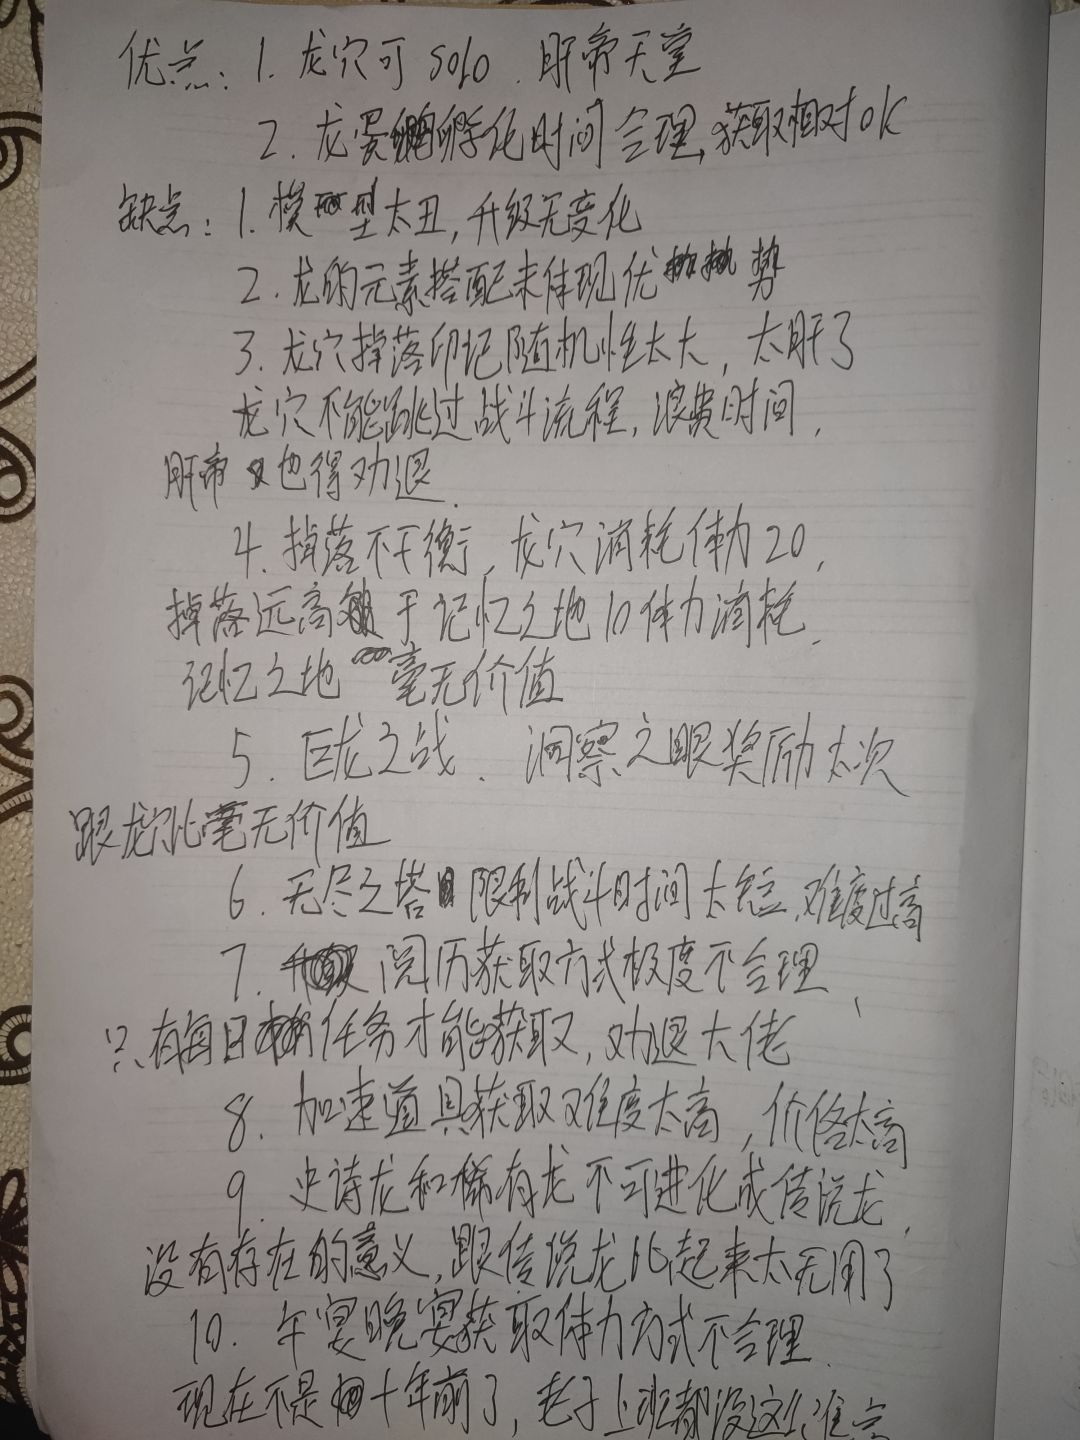 优点：1. 龙穴可solo. 肝帝天堂
2. 龙蛋孵化时间合理,获取相对ok
缺点：1. 模型太丑,升级无变化
2. 龙的元素搭配未体现优势
3. 龙穴掉落印记随机性太大, 太肝了
龙穴不能跳过战斗流程,浪费时间,
肝帝也得劝退.
4. 掉落不平衡, 龙穴消耗体力20,
掉落远高于记忆之地10体力消耗.
记忆之地 毫无价值
5. 巨龙之战. 洞察之眼奖励太次
跟龙穴比毫无价值
6. 无尽之塔限制战斗时间太短,难度过高
7. 阅历获取方式极度不合理,
只有每日任务才能获取,劝退大佬
8. 加速道具获取难度太高, 价格太高
9. 史诗龙和稀有龙不可进化成传说龙,
没有存在的意义,跟传说龙比起来太无用了
10. 午宴晚宴获取体力方式不合理.
现在不是十年前了, 老子上班都没这么准点